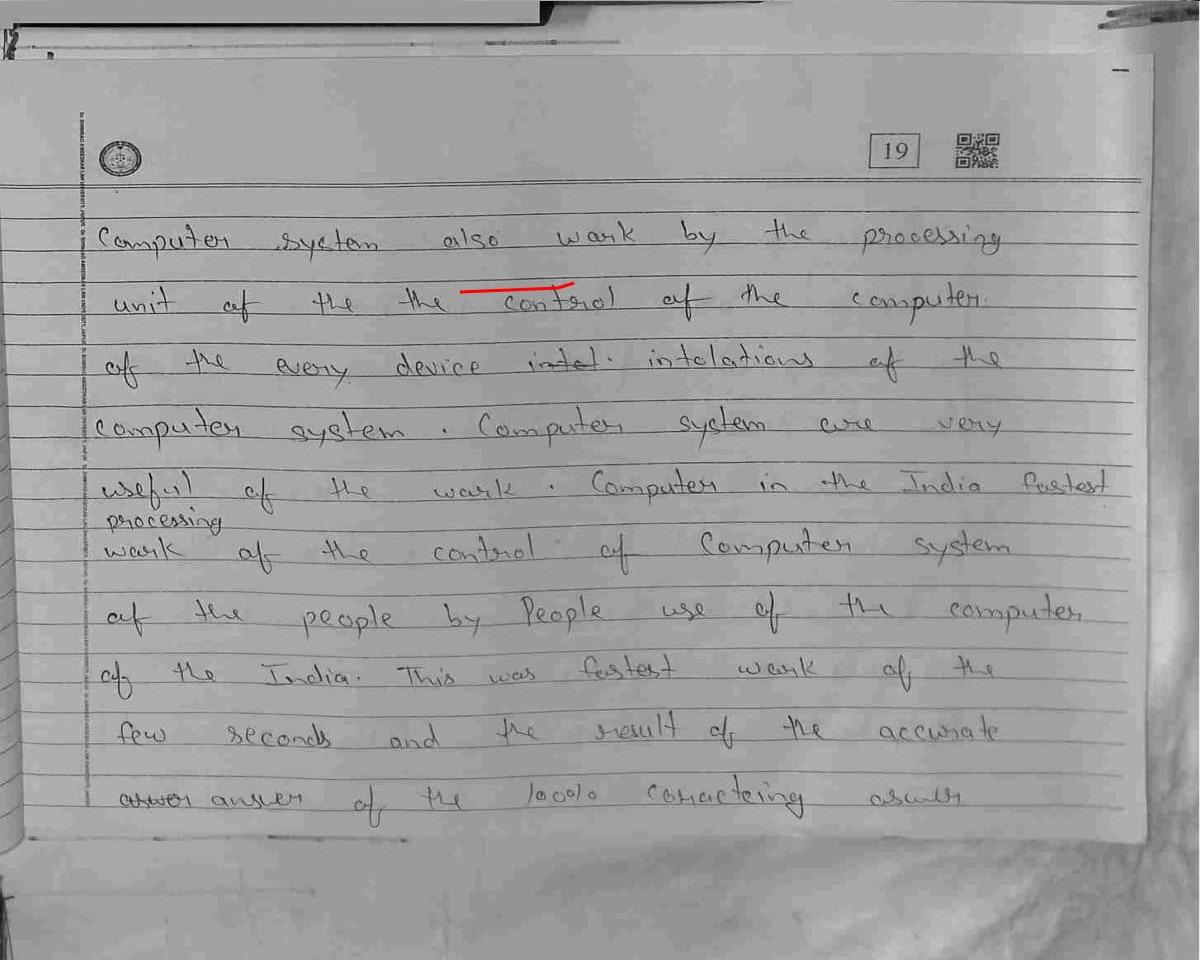 19
Computer system also work by the processing
unit of the the control of the computer.
of the every device intel. intolations of the
computer system. Computer system are very
useful of the work. Computer in the India fastest
processing
work of the control of Computer system
of the people by People use of the computer
of the India. This was fastest work of the
few seconds and the result of the accurate
answer of the 100%